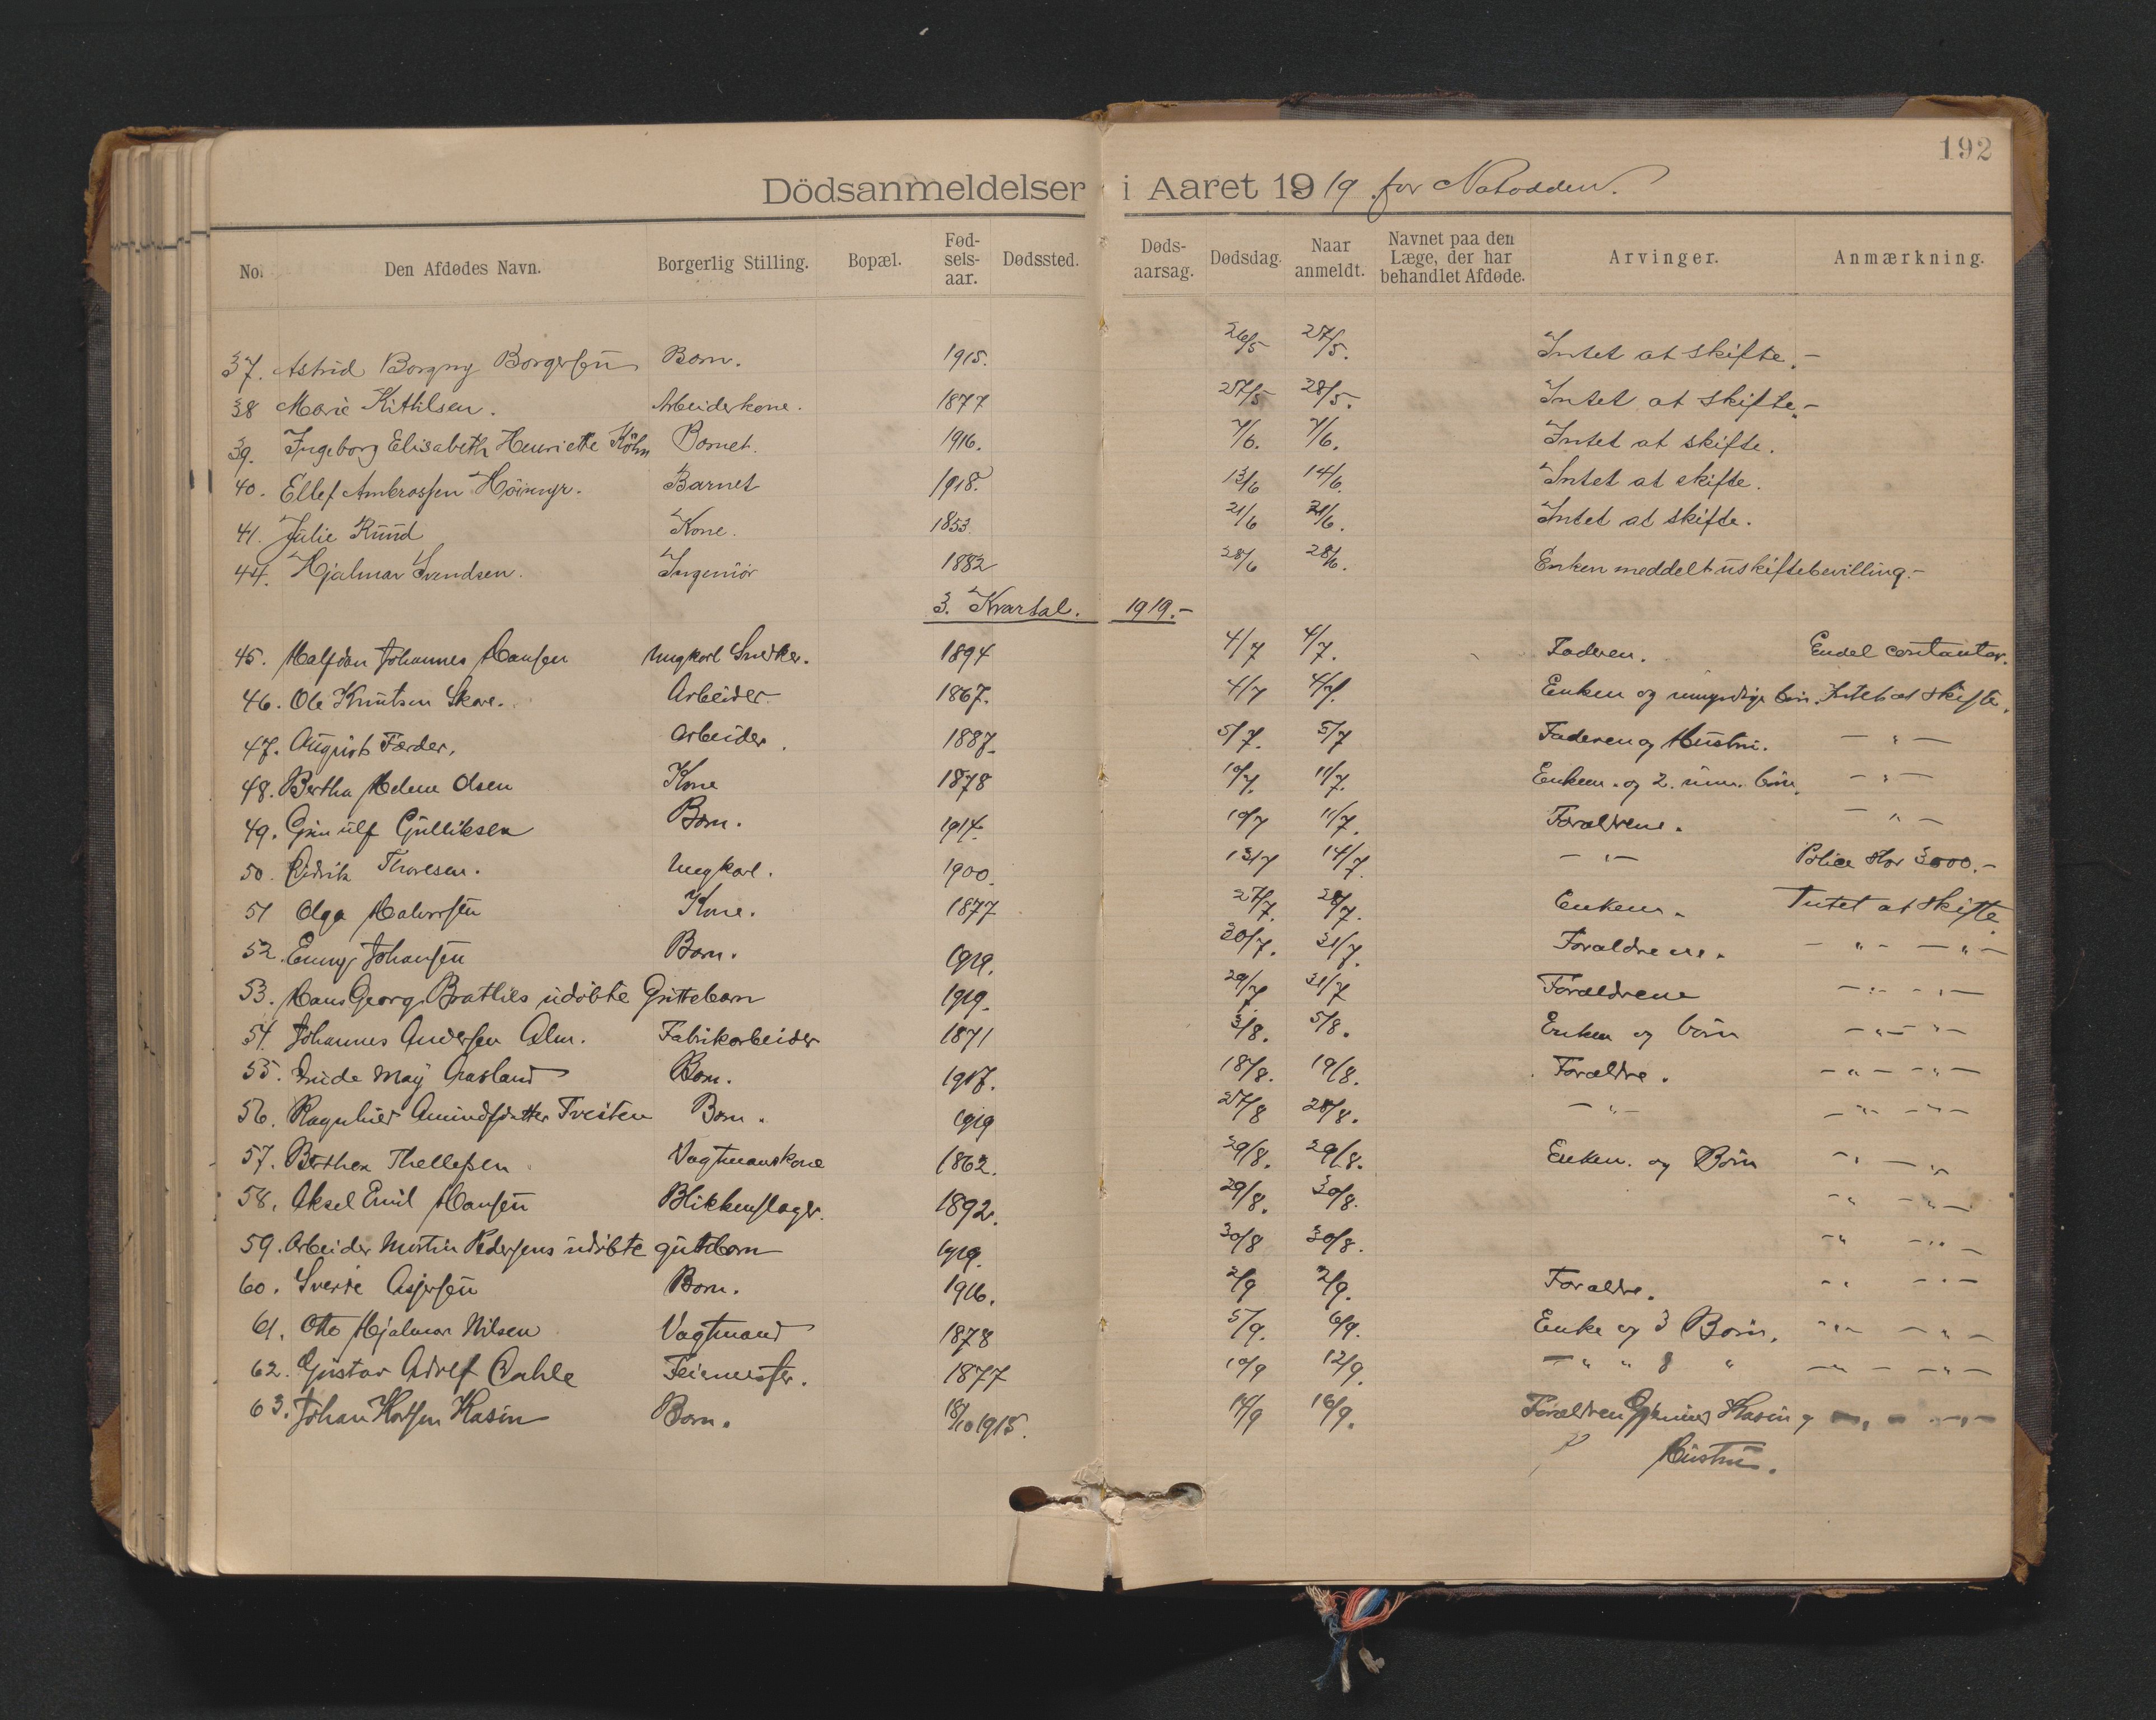 192
Dödsanmeldelser i Aaret 1919 for Notodden.
No. Den Afdødes Navn. Borgerlig Stilling. Bopæl. Fødselsaar. Dødssted. Dødsaarsag. Dødsdag. Naar anmeldt. Navnet paa den Læge, der har behandlet Afdøde. Arvinger. Anmærkning.
37. Astrid Borgny Borgersen Barn. 1915. 26/5 27/5. Intet at skifte.-
38 Marie Kittilsen. Arbeiderkone. 1877 27/5 28/5. Intet at skifte.-
39. Ingeborg Elisabeth Henriette Köhn Barnet. 1916. 7/6. 7/6. Intet at skifte.
40. Ellef Ambrossen Höimyr. Barnet 1918. 13/6 14/6. Intet at skifte.
41. Julie Ruud Kone. 1853. 21/6 21/6. Intet at skifte.
44. Hjalmar Svendsen. Ingeniör 1882 28/6 28/6. Enken meddelt uskiftebevilling.-
3. Kvartal. 1919.-
45. Halfdan Johannes Hansen Ungkarl Snekker. 1894 4/7 4/7. Faderen. Endel contanter.
46. Ole Knutsen Skare. Arbeider 1867. 4/7 4/7. Enken og umyndige börn. Intet at skifte.
47. August Færder. Arbeider. 1887. 5/7. 5/7 Faderen og Hustru. — " —
48. Bertha Helene Olsen Kone 1878 10/7. 11/7. Enkem. og 2. um. börn. — " —
49. Gunulf Gulliksen Barn. 1914. 10/7 11/7. Forældrene. — " —
50. Didrik Thoresen. Ungkarl. 1900. 13/7 14/7. — " — Police stor 3000.-
51 Olga Halvorsen Kone. 1877 27/7. 28/7. Enkem. Intet at skifte
52. Emmy Johansen Barn. 1919. 30/7. 31/7. Forældrene. — " — — " —
53. Hans Georg Bratlies udöbte Guttebarn 1919. 29/7 31/7 Forældrene — " — " —
54. Johannes Andersen Alm. Fabrikarbeider 1871 3/8. 5/8. Enken og börn — " — " —
55. May Aasland Barn. 1917. 18/8. 19/8. Forældre. — " — — " —
56. Ragnhild Amundsdatter Tveiten Barn. 1919 27/8 28/8. — " — — " — " —
57. Berthea Thellefsen Vagtmanskone 1862. 29/8. 29/8. Enkem. og Börn — " — "
58. Aksel Emil Hansen Blikkenslager. 1892. 29/8. 30/8. — " — " —
59. Arbeider Martin Pedersens udöbte guttebarn 1919. 30/8 30/8. — " — " —
60. Sverre Asjersen Barn. 1916. 2/9 2/9. Forældre. — " — " —
61. Otto Hjalmar Nilsen Vagtmand 1878 5/9. 6/9. Enke og 3 Börn. — " — — " —
62. Gustav Adolf Dahle Feiermester. 1877 10/9 12/9. — " " 8 " — " — — " —
63. Johan Kasin Barn. 18/10 1915. 14/9 16/9. Forældrene Kasin og — " — — " —
Hustru.